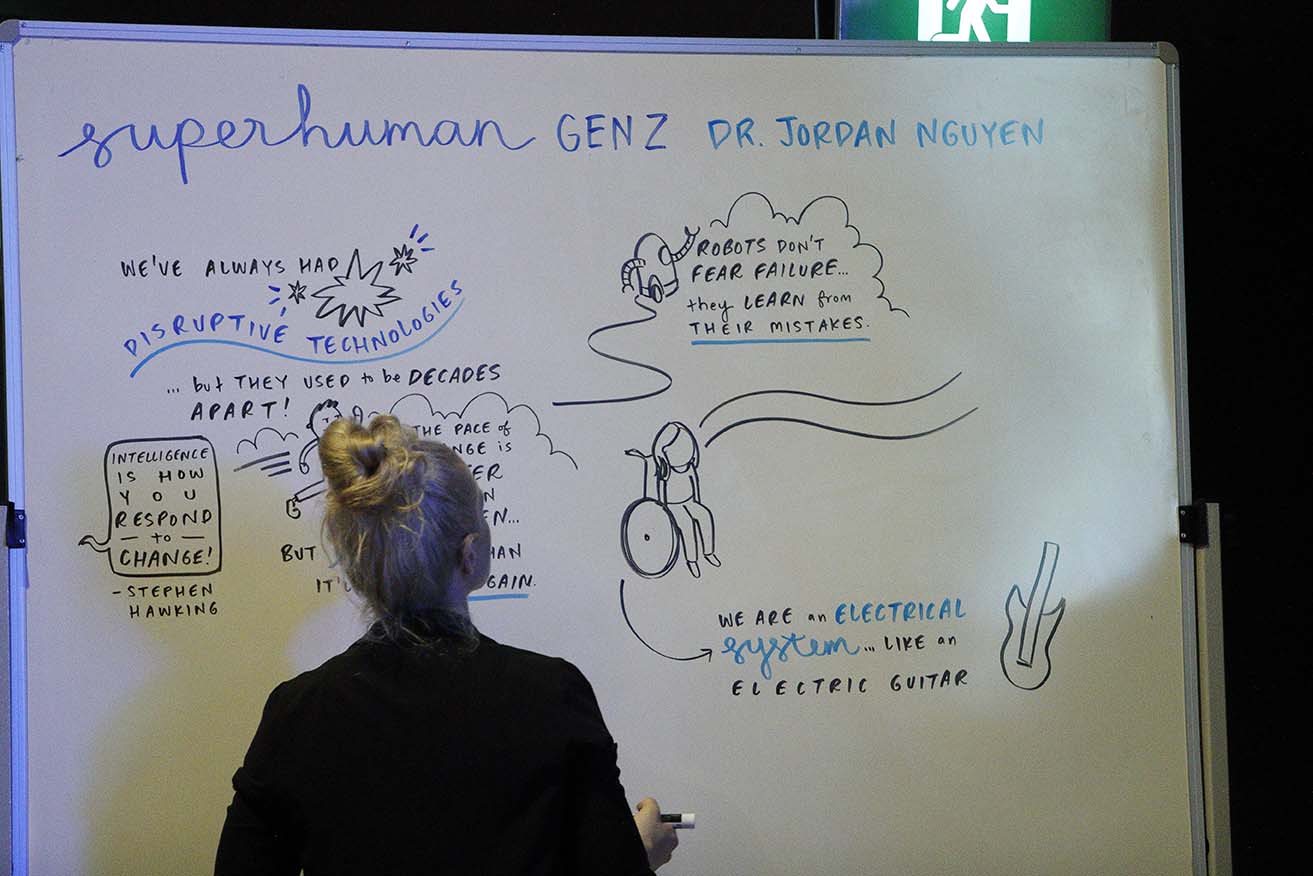 superhuman GEN Z DR. JORDAN NGUYEN
WE'VE ALWAYS HAD
DISRUPTIVE TECHNOLOGIES
... but THEY USED to be DECADES
APART!
INTELLIGENCE
IS HOW
YOU
RESPOND
— to —
CHANGE!
- STEPHEN
HAWKING
THE PACE of
IS
BUT
ROBOTS DON'T
FEAR FAILURE...
they LEARN from
THEIR MISTAKES.
WE ARE an ELECTRICAL
system... LIKE an
ELECTRIC GUITAR